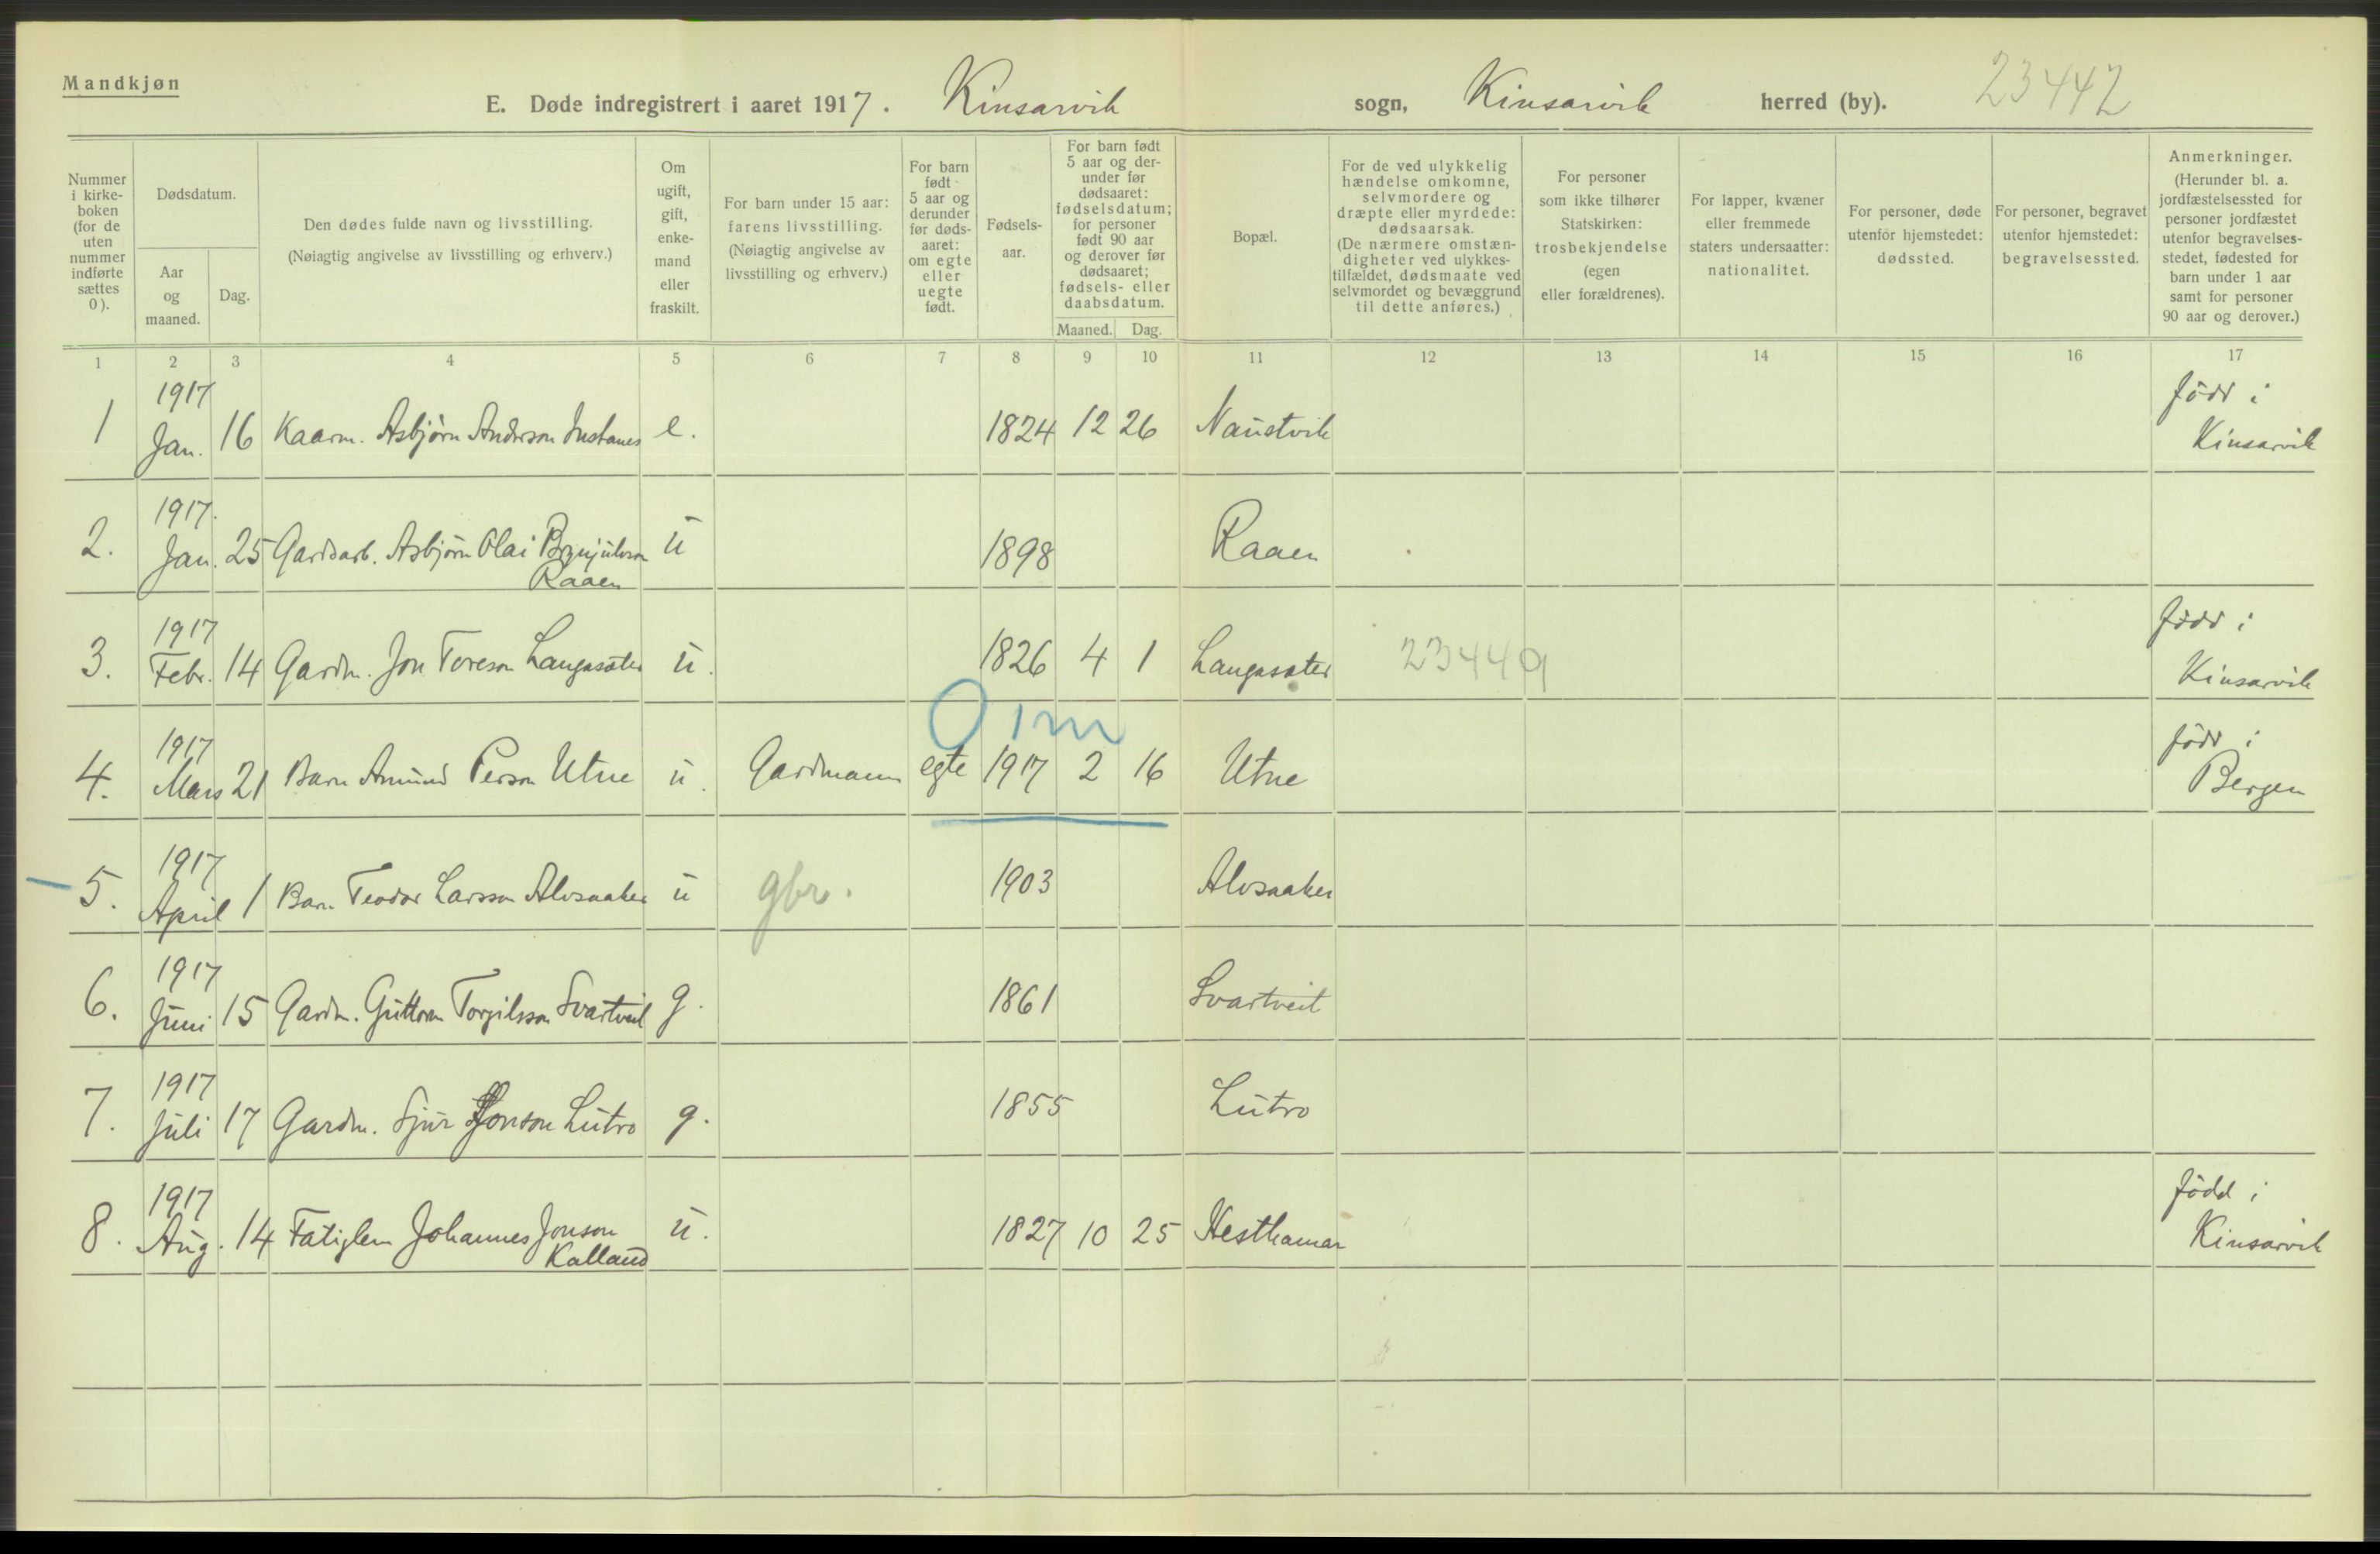 Mandkjøn
E. Døde indregistrert i aaret 1917. Kinsarvik sogn, Kinsarvik herred (by). 23442
Nummer i kirke-boken (for de uten nummer indførte sættes 0).
Dødsdatum.
Aar og maaned.
Dag.
Den dødes fulde navn og livsstilling.
(Nøiagtig angivelse av livsstilling og erhverv.)
Om ugift, gift, enke-mand eller fraskilt.
For barn under 15 aar: farens livsstilling.
(Nøiagtig angivelse av livsstilling og erhverv.)
For barn født 5 aar og derunder før døds-aaret: om egte eller uegte født.
Fødsels-aar.
For barn født 5 aar og der-under før dødsaaret: fødselsdatum; for personer født 90 aar og derover før dødsaaret; fødsels- eller daabsdatum.
Maaned. Dag.
Bopæl.
For de ved ulykkelig hændelse omkomne, selvmordere og dræpte eller myrdede: dødsaarsak.
(De nærmere omstæn-digheter ved ulykkes-tilfældet, dødsmaate ved selvmordet og bevæggrund til dette anføres.)
For personer som ikke tilhører Statskirken: trosbekjendelse (egen eller forældrenes).
For lapper, kvæner eller fremmede staters undersaatter: nationalitet.
For personer, døde utenfor hjemstedet: dødssted.
For personer, begravet utenfor hjemstedet: begravelsessted.
Anmerkninger.
(Herunder bl. a. jordfæstelsessted for personer jordfæstet utenfor begravelses-stedet, fødested for barn under 1 aar samt for personer 90 aar og derover.)
1 2 3 4 5 6 7 8 9 10 11 12 13 14 15 16 17
1 1917 Jan. 16 Kaarm. Asbjørn Anderson Instanes e. 1824 12 26 Naustvik född i Kinsarvik
2. 1917. Jan. 25 Gardsarb. Asbjørn Olai Brynjulvson Raaen u 1898 Raaen
3. 1917 Febr. 14 Gardm. Jon Toreson Langasæter u. 1826 4 1 Langasæter 23449 född i Kinsarvik
0 1m
4. 1917 Mars 21 Barn Amund Person Utne u. Gardmann egte 1917 2 16 Utne född i Bergen
5. 1917 April 1 Barn Teodor Larsson Alvsaaker u gbr. 1903 Alvsaaker
6. 1917 Juni 15 Gardm. Guttorm Torgilsson Svartveit g. 1861 Svartveit
7. 1917 Juli 17 Gardm. Sjur Jonson Lutro g. 1855 Lutro
8. 1917 Aug. 14 Fatiglem Johannes Jonson Kalland u. 1827 10 25 Hesthamar född i Kinsarvik